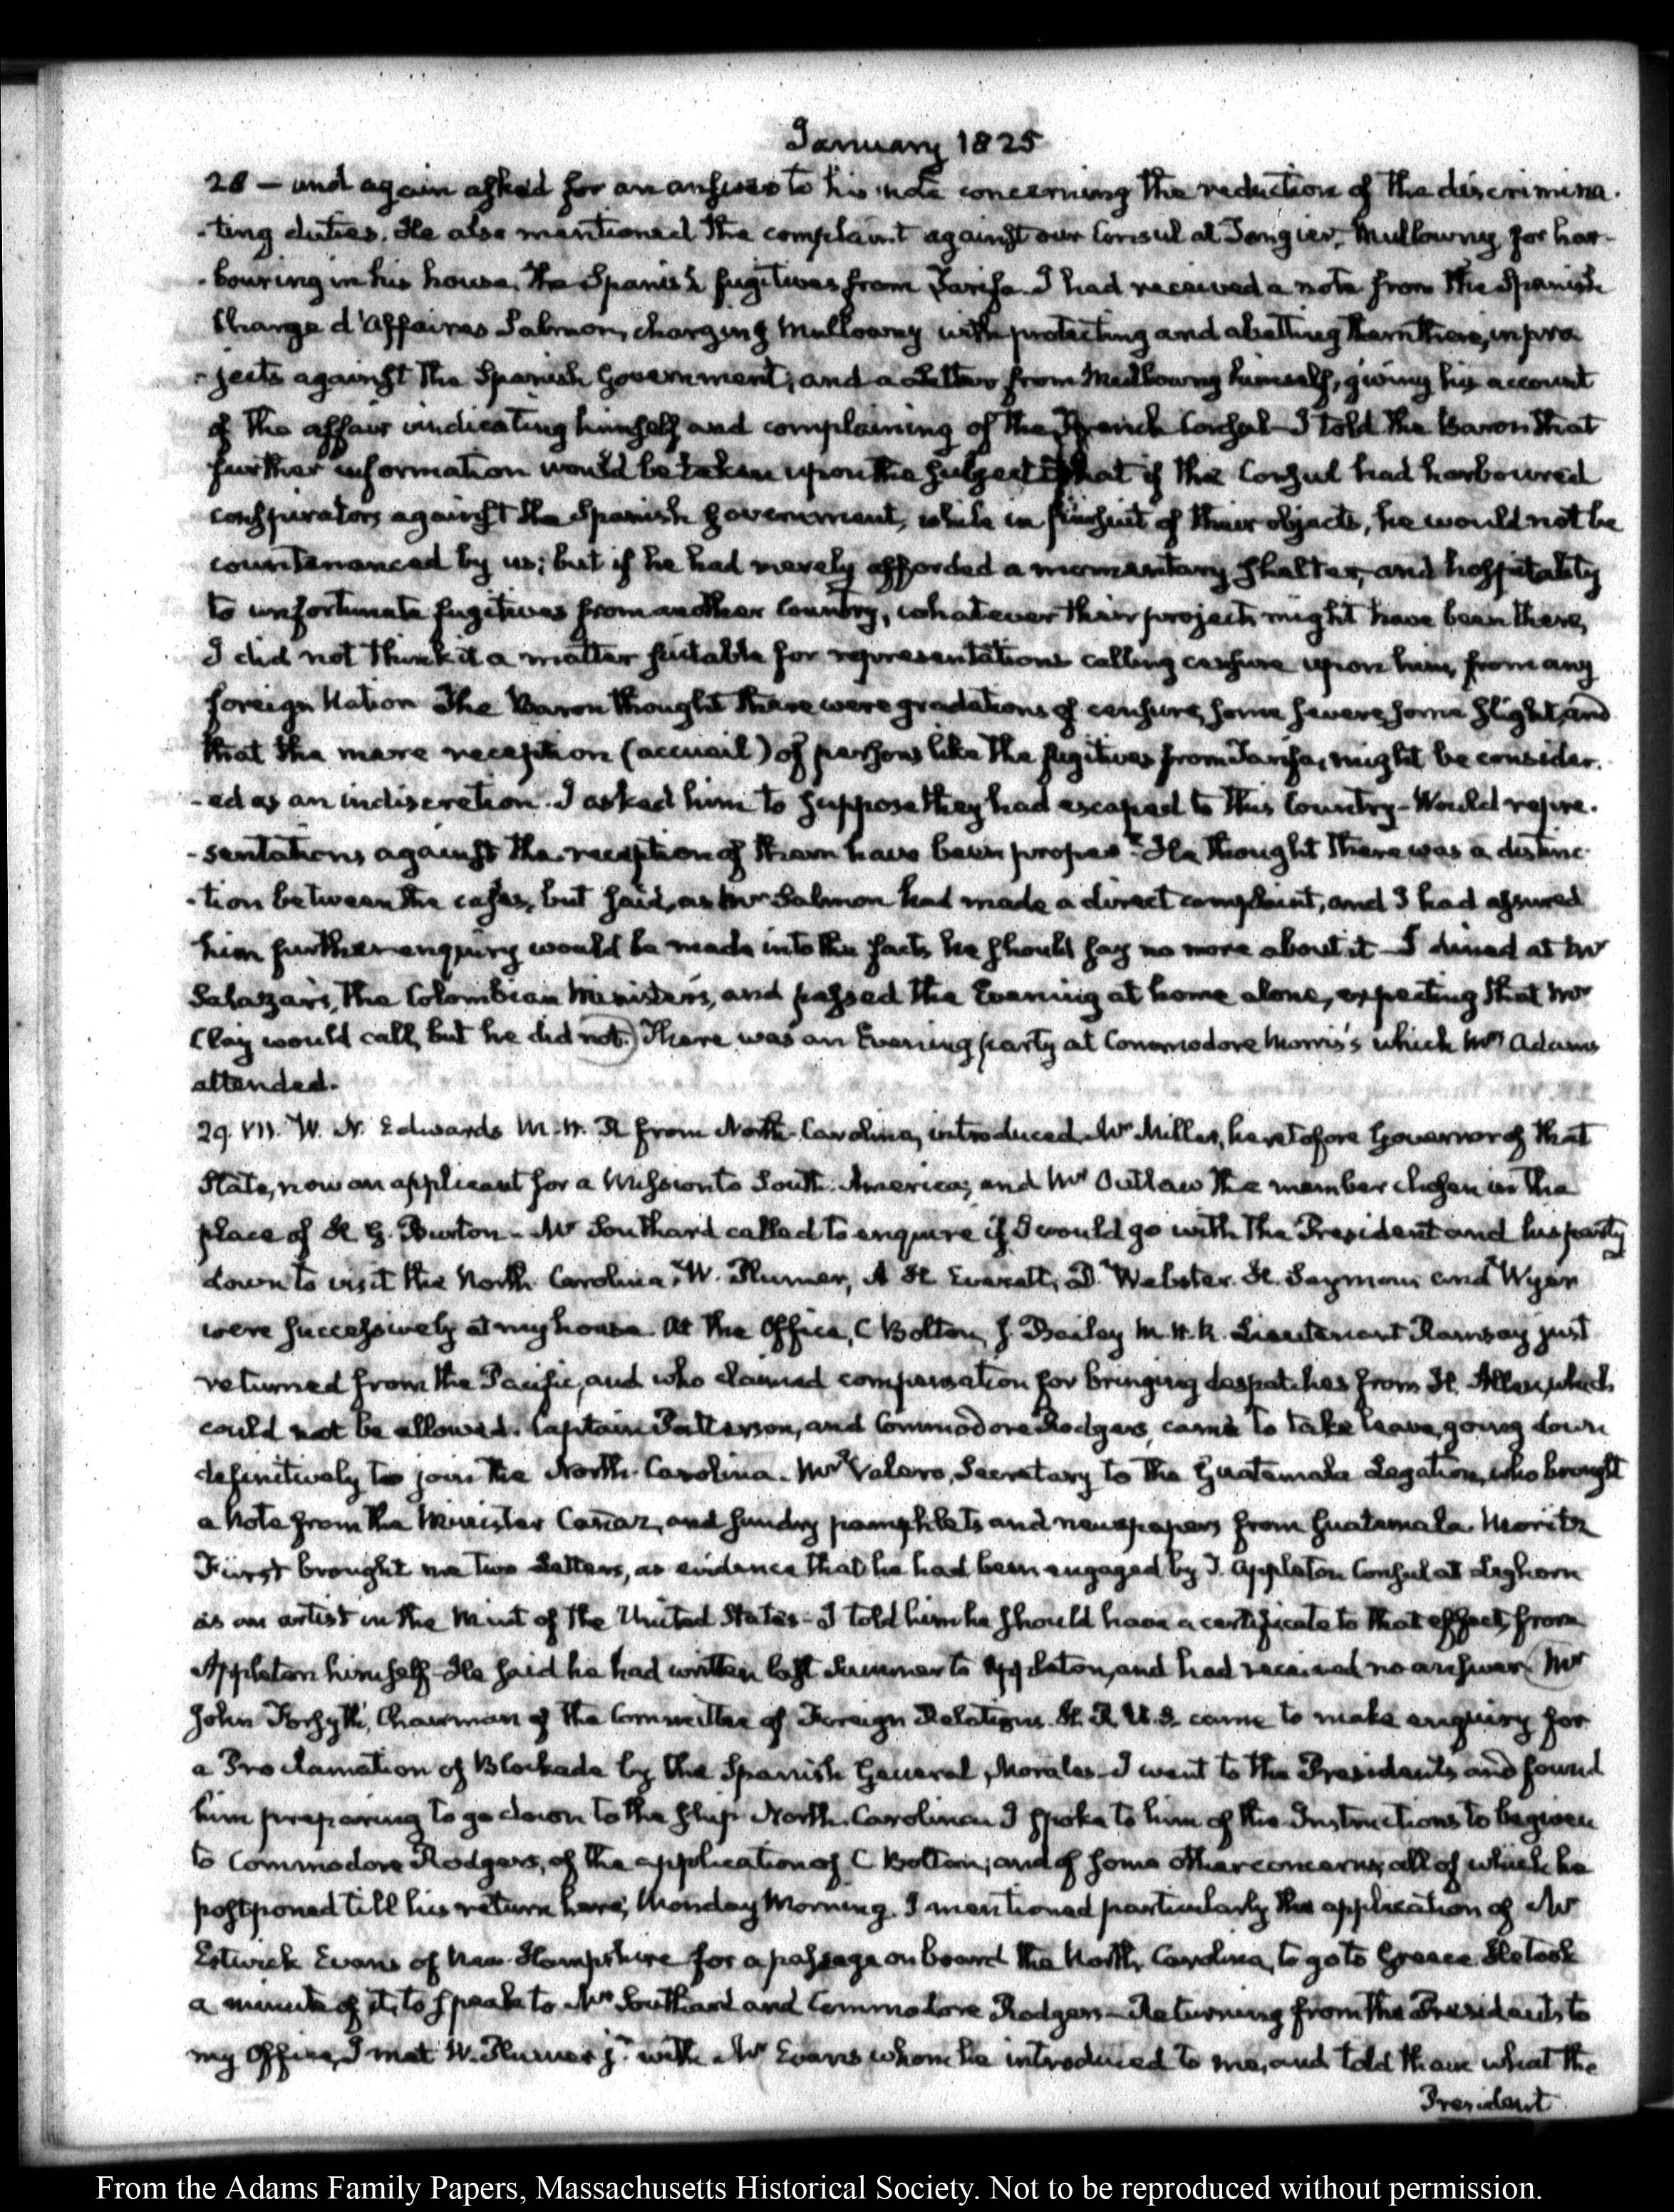 January 1825
28 — and again asked for an answer to his note concerning the reduction of the discrimina-
-ting duties. He also mentioned the complaint against our Consul at Tangier, Mullowny for har-
-bouring in his house, the Spanish fugitives from Tarifa. I had received a note from the Spanish
Chargé d'Affaires Salmon, charging Mullowny with protecting and abetting them there, in pro
-jects against the Spanish Government; and a Letter from Mullowny himself, giving his account
of the affair vindicating himself and complaining of the French Consul—I told the Baron that
further information would be taken upon the subject that if the Consul had harboured
conspirators against the Spanish government, while in pursuit of their objects, he would not be
countenanced by us; but if he had merely afforded a momentary shelter, and hospitality
to unfortunate fugitives from another Country, whatever their projects might have been there,
I did not think it a matter suitable for representations calling censure upon him, from any
foreign Nation The Baron thought there were gradations of censure, some severe, some slight, and
that the mere reception (accueil) of persons like the fugitives from Tarifa, might be consider-
-ed as an indiscretion. I asked him to suppose they had escaped to this Country—Would repre-
-sentations against the reception of them have been proper? He thought there was a distinc-
-tion between the cases, but said, as Mr Salmon had made a direct complaint, and I had assured
him further enquiry would be made into the facts he should say no more about it—I dined at Mr
Salazar's, the Colombian Minister's, and passed the Evening at home alone, expecting that Mr
Clay would call, but he did not. There was an Evening party at Commodore Morris's which Mrs Adams
attended.
29. VII. W. N. Edwards M. H. R from North-Carolina, introduced Mr Miller, heretofore Governor of that
State, now an applicant for a Mission to South-America; and Mr Outlaw the member chosen in the
place of H. G. Burton—Mr Southard called to enquire if I would go with the President and his party
down to visit the North Carolina. W. Plumer, A H. Everett, D. Webster. H. Seymour, and Wyer
were successively at my house. At the Office, C Bolton, J. Bailey M. H. R. Lieutenant Ramsay just
returned from the Pacific, and who claimed compensation for bringing despatches from H. Allen, which
could not be allowed. Captain Patterson, and Commodore Rodgers, came to take leave, going down
definitively to join the North-Carolina. Mr Valero, Secretary to the Guatemala Legation, who brought
a Note from the Minister Cañaz, and sundry pamphlets and newspapers from Guatemala. Moritz
Fürst brought me two Letters, as evidence that he had been engaged by T. Appleton Consul at Leghorn
as an artist in the Mint of the United States—I told him he should have a certificate to that effect, from
Appleton himself—He said he had written last Summer to Appleton, and had received no answer. Mr
John Forsyth, Chairman of the Committee of Foreign Relations. H. R. U. S. came to make enquiry for
a Proclamation of Blockade by the Spanish General, Morales—I went to the President's and found
him preparing to go down to the ship North-Carolina. I spoke to him of the Instructions to be given
to Commodore Rodgers, of the application of C Bolton; and of some other concerns, all of which he
postponed till his return here, Monday Morning. I mentioned particularly the application of Mr
Estwick Evans of New-Hampshire for a passage on board the North Carolina, to go to Greece. He took
a minute of it, to speak to Mr Southard and Commodore Rodgers—Returning from the President's to
my Office, I met W. Plumer jr. with Mr Evans whom he introduced to me, and told them what the
President
From the Adams Family Papers, Massachusetts Historical Society. Not to be reproduced without permission.